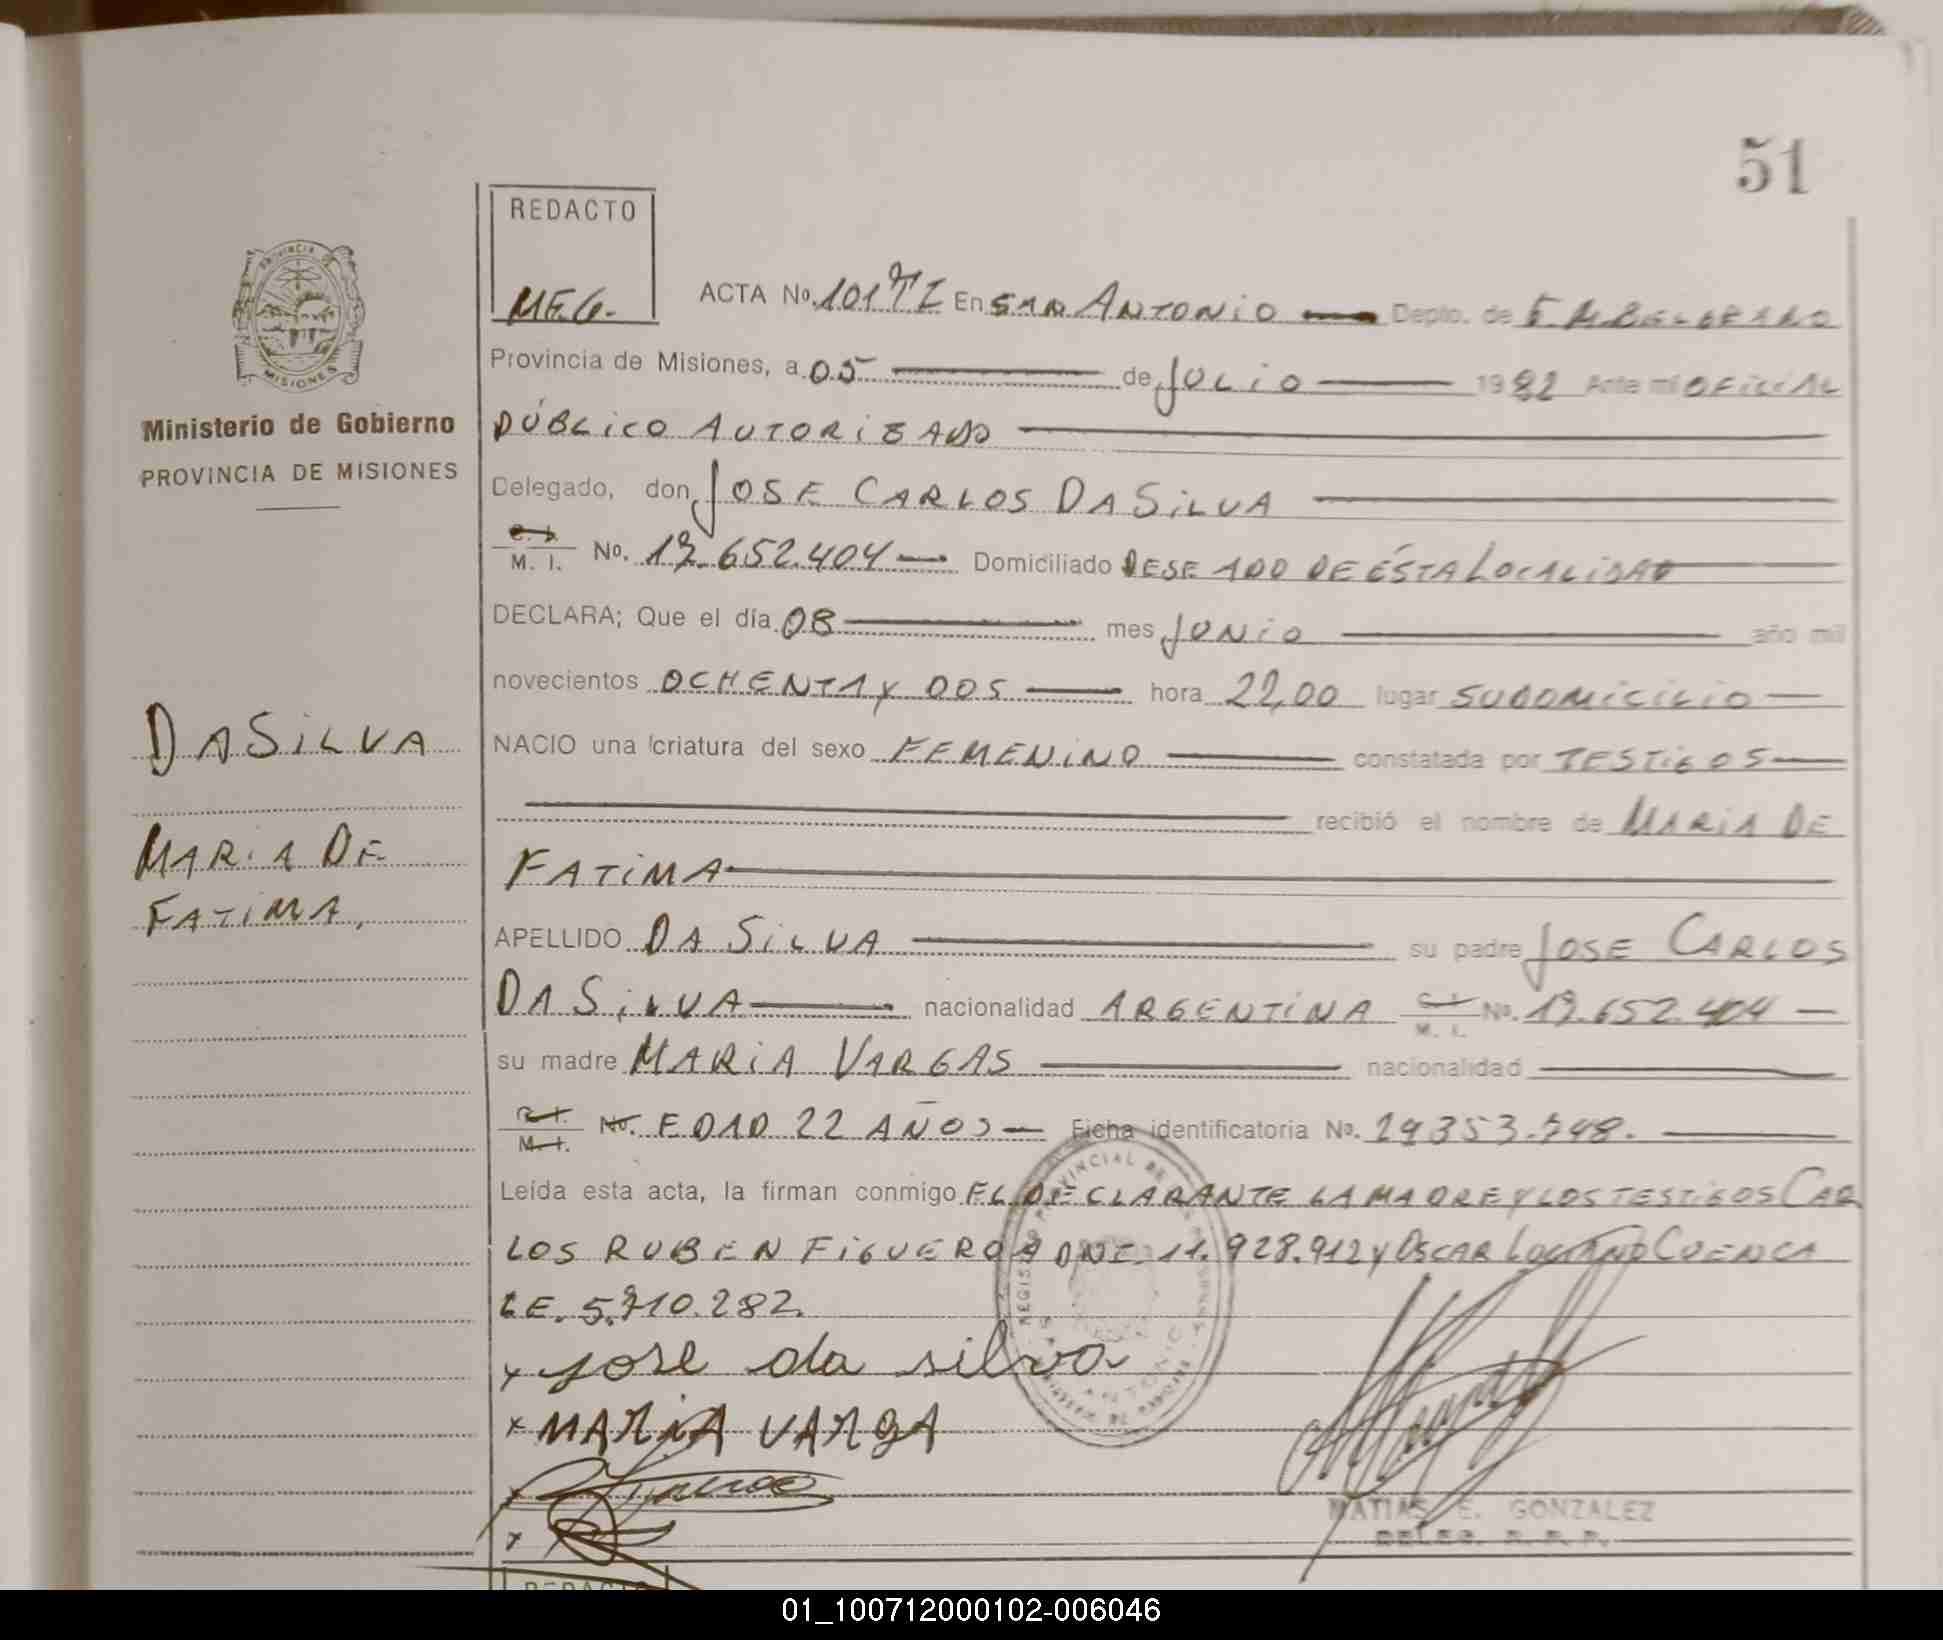 51
REDACTO
M.E.G.
ACTA No. 101 TI En SAN ANTONIO Depto. de G. M. BELGRANO
Provincia de Misiones, a 05 de JULIO 1982 Ante mi OFICIAL
PÚBLICO AUTORIZADO
Delegado, don JOSE CARLOS DA SILVA
C. I.
M. I. No. 17.652.404 Domiciliado DESEADO DE ÉSTA LOCALIDAD
DECLARA; Que el día 08 mes JUNIO año mil
novecientos OCHENTA Y DOS hora 22,00 lugar SU DOMICILIO
NACIO una criatura del sexo FEMENINO constatada por TESTIGOS
recibió el nombre de MARIA DE
FATIMA
APELLIDO DA SILVA su padre JOSE CARLOS
DA SILVA nacionalidad ARGENTINA C. I. M. I. No. 17.652.404
su madre MARIA VARGAS nacionalidad
C. I.
M. I. No. EDAD 22 AÑOS Ficha identificatoria No.
Leída esta acta, la firman conmigo EL DECLARANTE LA MADRE Y LOS TESTIGOS CAR
LOS RUBEN FIGUEROA DNI. 11.928.912 Y OSCAR CUENCA
LE. 5.710.282.
x jose da silva
x MARIA VARGA
x
x
MATIAS E. GONZALEZ
DELEG. R. P. P.
PROVINCIA DE
MISIONES
Ministerio de Gobierno
PROVINCIA DE MISIONES
DA SILVA
MARIA DE
FATIMA,
REDACTO
01_100712000102-006046